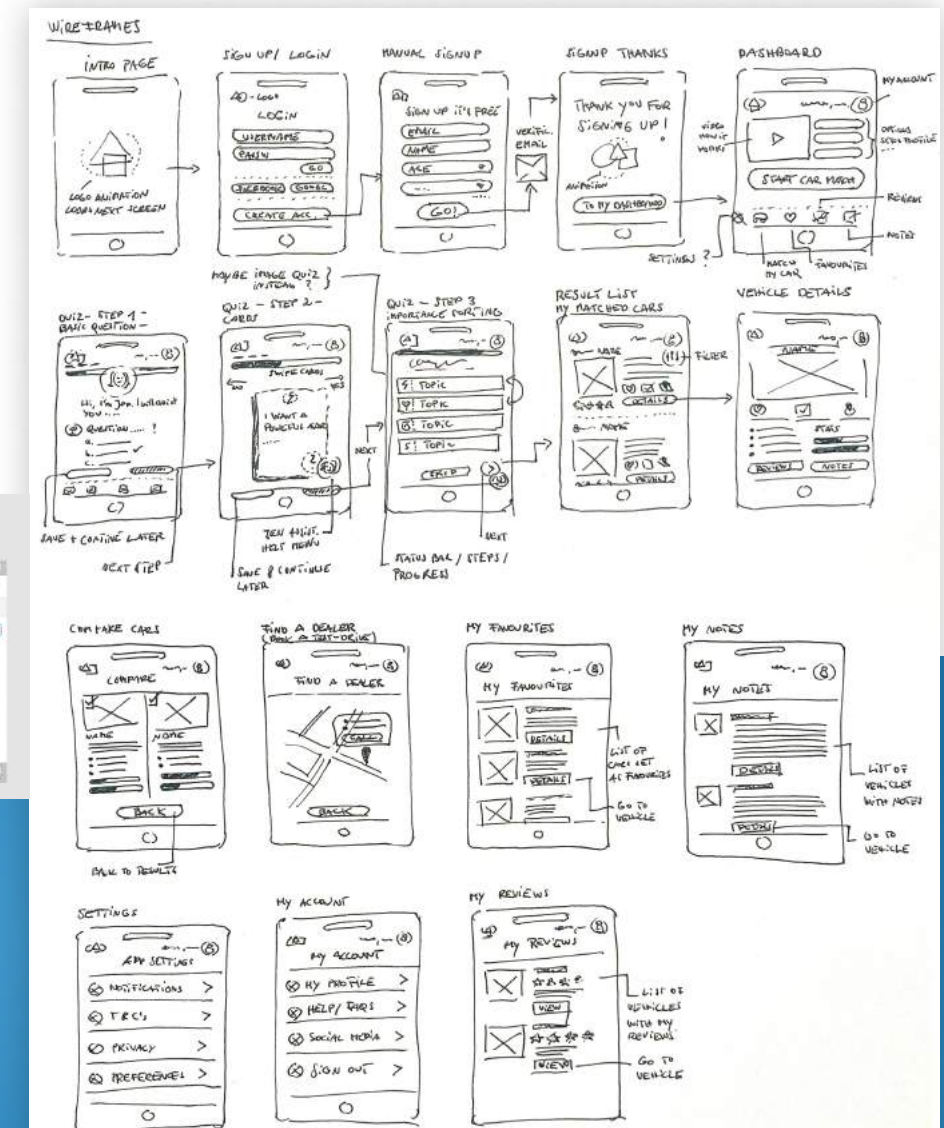 WIREFRAMES
INTRO PAGE
LOGO ANIMATION
LOADS NEXT SCREEN
SIGN UP / LOGIN
- LOGO
LOGIN
USERNAME
PASSW
GO
FACEBOOK GOOGLE
CREATE ACC.
MANUAL SIGNUP
SIGN UP IT'S FREE
EMAIL
NAME
AGE
...
GO!
VERIFIC.
EMAIL
SIGNUP THANKS
THANK YOU FOR
SIGNING UP!
ANIMATION
TO MY DASHBOARD
DASHBOARD
MY ACCOUNT
VIDEO
HOW IT
WORKS
OPTIONS
START CAR MATCH
REVIEWS
NOTES
SETTINGS?
MATCH
MY CAR
FAVOURITES
MAYBE IMAGE QUIZ
INSTEAD?
QUIZ - STEP 1 -
BASIC QUESTION -
HI, I'M JEN. I WILL ASSIST
YOU ....
QUESTION ..... ?
SAVE + CONTINUE LATER
NEXT STEP
QUIZ - STEP 2 -
CARDS
SWIPE CARDS
NO YES
I WANT A
POWERFUL
NEXT
JEN ASSIST.
HELP MENU
SAVE & CONTINUE
LATER
QUIZ - STEP 3
IMPORTANCE SORTING
TOPIC
TOPIC
TOPIC
TOPIC
SKIP
NEXT
STATUS BAR / STEPS /
PROGRESS
RESULT LIST
MY MATCHED CARS
NAME
FILTER
DETAILS
NAME
DETAILS
VEHICLE DETAILS
NAME
STATS
REVIEWS NOTES
COMPARE CARS
COMPARE
NAME NAME
BACK
BACK TO RESULTS
FIND A DEALER
(BOOK A TEST-DRIVE)
FIND A DEALER
CALL
BACK
MY FAVOURITES
MY FAVOURITES
DETAILS
DETAILS
LIST OF
CARS SET
AS FAVOURITES
GO TO
VEHICLE
MY NOTES
MY NOTES
DETAILS
DETAILS
LIST OF
VEHICLES
WITH NOTES
GO TO
VEHICLE
SETTINGS
APP SETTINGS
NOTIFICATIONS >
T&C'S >
PRIVACY >
PREFERENCES >
MY ACCOUNT
MY ACCOUNT
MY PROFILE >
HELP / FAQS >
SOCIAL MEDIA >
SIGN OUT >
MY REVIEWS
MY REVIEWS
VIEW
VIEW
LIST OF
VEHICLES
WITH MY
REVIEWS
GO TO
VEHICLE